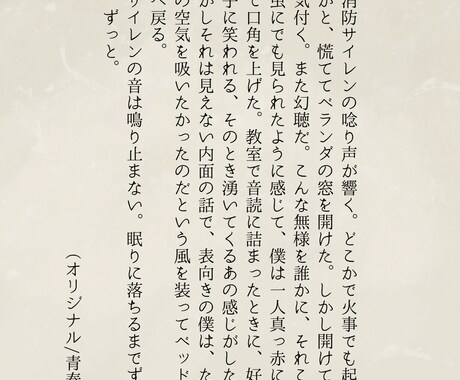 消防サイレンの唸り声が響く。どこかで火事でも起
がと、慌ててベランダの窓を開けた。しかし開けて
気付く。また幻聴だ。こんな無様を誰かに、それこ
虫にでも見られたように感じて、僕は一人真っ赤に
て口角を上げた。教室で音読に詰まったときに、好
子に笑われる、そのとき湧いてくるあの感じがした
がしそれは見えない内面の話で、表向きの僕は、た
の空気を吸いたかったのだという風を装ってベッド
へ戻る。
サイレンの音は鳴り止まない。眠りに落ちるまでず
ずっと。
（オリジナル/青春